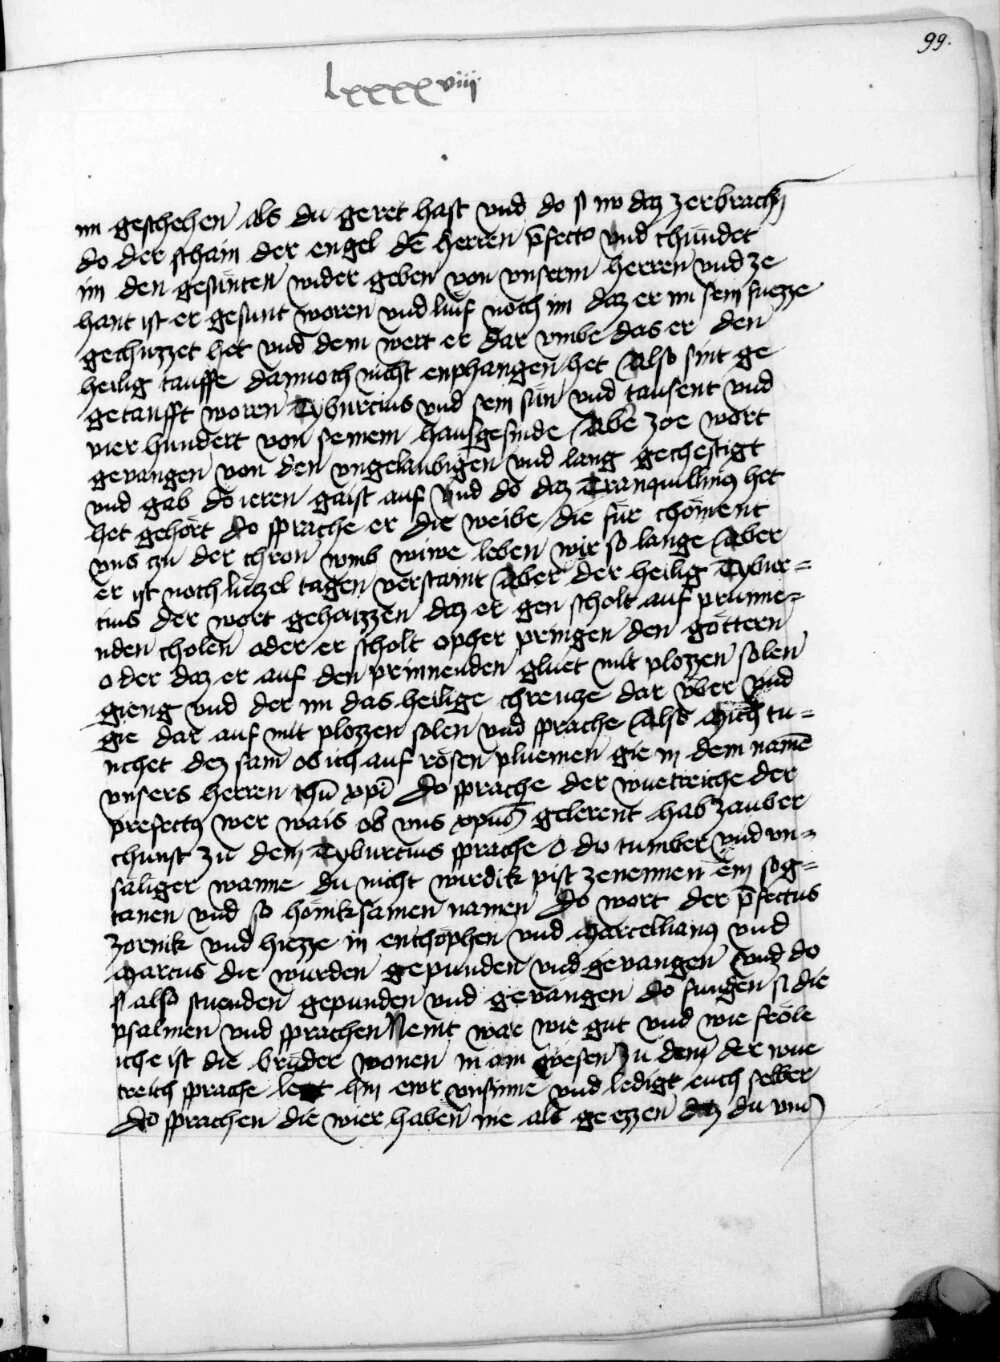 99.
Lxxxxviij
im geschehen als du geret hast vnd do si nw daz zerbrachn
do der schain der engel de herren pfecto vnd chundet
im den gesunten wider geben von vnserm herren vnd ze
hant ist er gesunt woren vnd luif noch im daz er im sein fuezze
gechuzzet het vnd dem wert er dar vmbe das er den
heilig tauffe dannoch nicht enphangen het Also sint ge
getaufft woren Tyburcius vnd sein sun vnd tausent vnd
vier hundert von seinem hausgesinde Abe zoe wort
gevangen von den vngelaubigen vnd lang gechestigt
vnd gab do ieren gaist auf vnd do daz Tranquillinus het
het gehort do sprache er die weibe die fur choment
vns czu der chron vmb wiwe leben wir so lange Aber
er ist noch luczel tagen verstaint Aber der heilig Tybur=
tius der wort gehaizzen daz er gen scholt auf prinne=
nden cholen oder er scholt opher pringen den göttern
oder daz er auf den prinnenden gluet mit plozzen solen
gieng vnd der im das heilige chreucze dar vber vnd
gie dar auf mit plozzen solen vnd sprache Also Mich tu=
nchet dez sam ob ich auf rosen pluemen gie in dem name
vnsers herren ihu xpi do sprache der wuetreiche der
prefectus wer wais ob vns xpus gelerent hab zauber
chunst zu dem Tyburcius sprache O du tumber vnd vn=
saliger wanne du nicht wirdik pist zenennen ein sog=
tanen vnd so honiksamen namen Do wort der pfectus
zornik vnd hiezze in enthophen vnd Marcellianus vnd
Marcus die wurden gepunden vnd gevangen vnd do
si also stuenden gepunden vnd gevangen do sungen si die
psalmen vnd sprachen Nemt war wie gut vnd wie frole
iche ist die bruder wonen in ain wesen Zu dem der wue
treich sprache legt hin ewr vnsinne vnd ledigt euch selber
do sprachen die wier haben nie als geezzen daz du vns